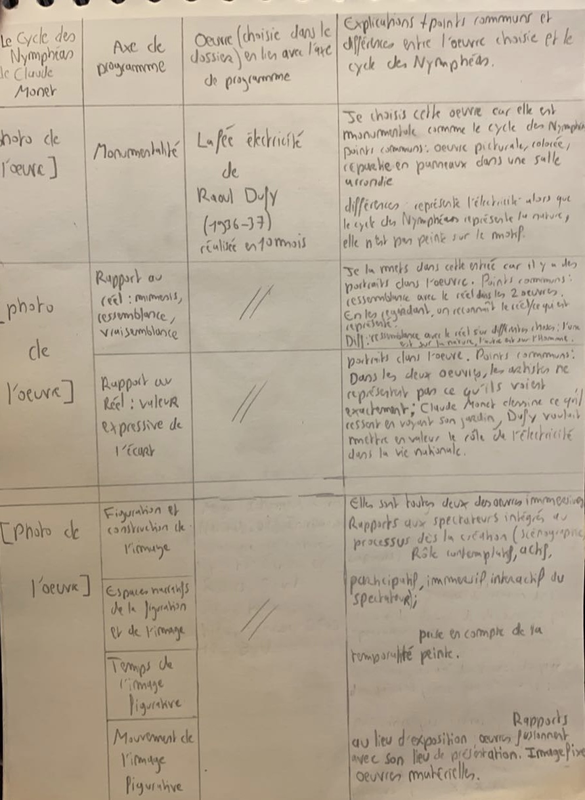 Le Cycle des
Nymphéas
de Claude
Monet
Axe de
programme
Oeuvre (choisie dans le
dossier) en lien avec l'axe
de programme
Explications + points communs et
différences entre l'oeuvre choisie et le
cycle des Nymphéas.
photo de
l'oeuvre]
Monumentalité
La fée électricité
de
Raoul Dufy
(1936-37)
réalisée en 10 mois
Je choisis cette oeuvre car elle est
monumentale comme le cycle des Nymphéas
points communs: oeuvre picturale, colorée,
répartie en panneaux dans une salle
arrondie
différences: représente l'électricité alors que
le cycle des Nymphéas représente la nature,
elle n'est pas peinte sur le motif.
[photo
de
l'oeuvre]
Rapport au
réel: mimesis,
ressemblance,
vraisemblance
//
Je la mets dans cette entrée car il y a des
portraits dans l'oeuvre. Points communs:
ressemblance avec le réel dans les 2 oeuvres.
En les regardant, on reconnaît le réel/ce qui est
représenté.
Diff: ressemblance avec le réel sur différentes choses: l'une
est sur la nature, l'autre est sur l'Homme.
Rapport au
Réel: valeur
expressive de
l'écart
//
portraits dans l'oeuvre. Points communs:
Dans les deux oeuvres, les artistes ne
représentent pas ce qu'ils voient
exactement; Claude Monet dessine ce qu'il
ressent en voyant son jardin, Dufy voulait
mettre en valeur le rôle de l'électricité
dans la vie nationale.
[photo de
l'oeuvre]
Figuration et
construction de
l'image
Espaces narratifs
de la figuration
et de l'image
Temps de
l'image
figurative
Mouvement de
l'image
figurative
//
Elles sont toutes deux des oeuvres immersives
Rapports aux spectateurs intégrés au
processus dès la création (scénographie,
Rôle contemplatif, actif,
participatif, immersif, interactif du
spectateur);
prise en compte de sa
temporalité peinte.
Rapports
au lieu d'exposition oeuvres
avec son lieu de présentation. Image fixe
oeuvres matérielles.